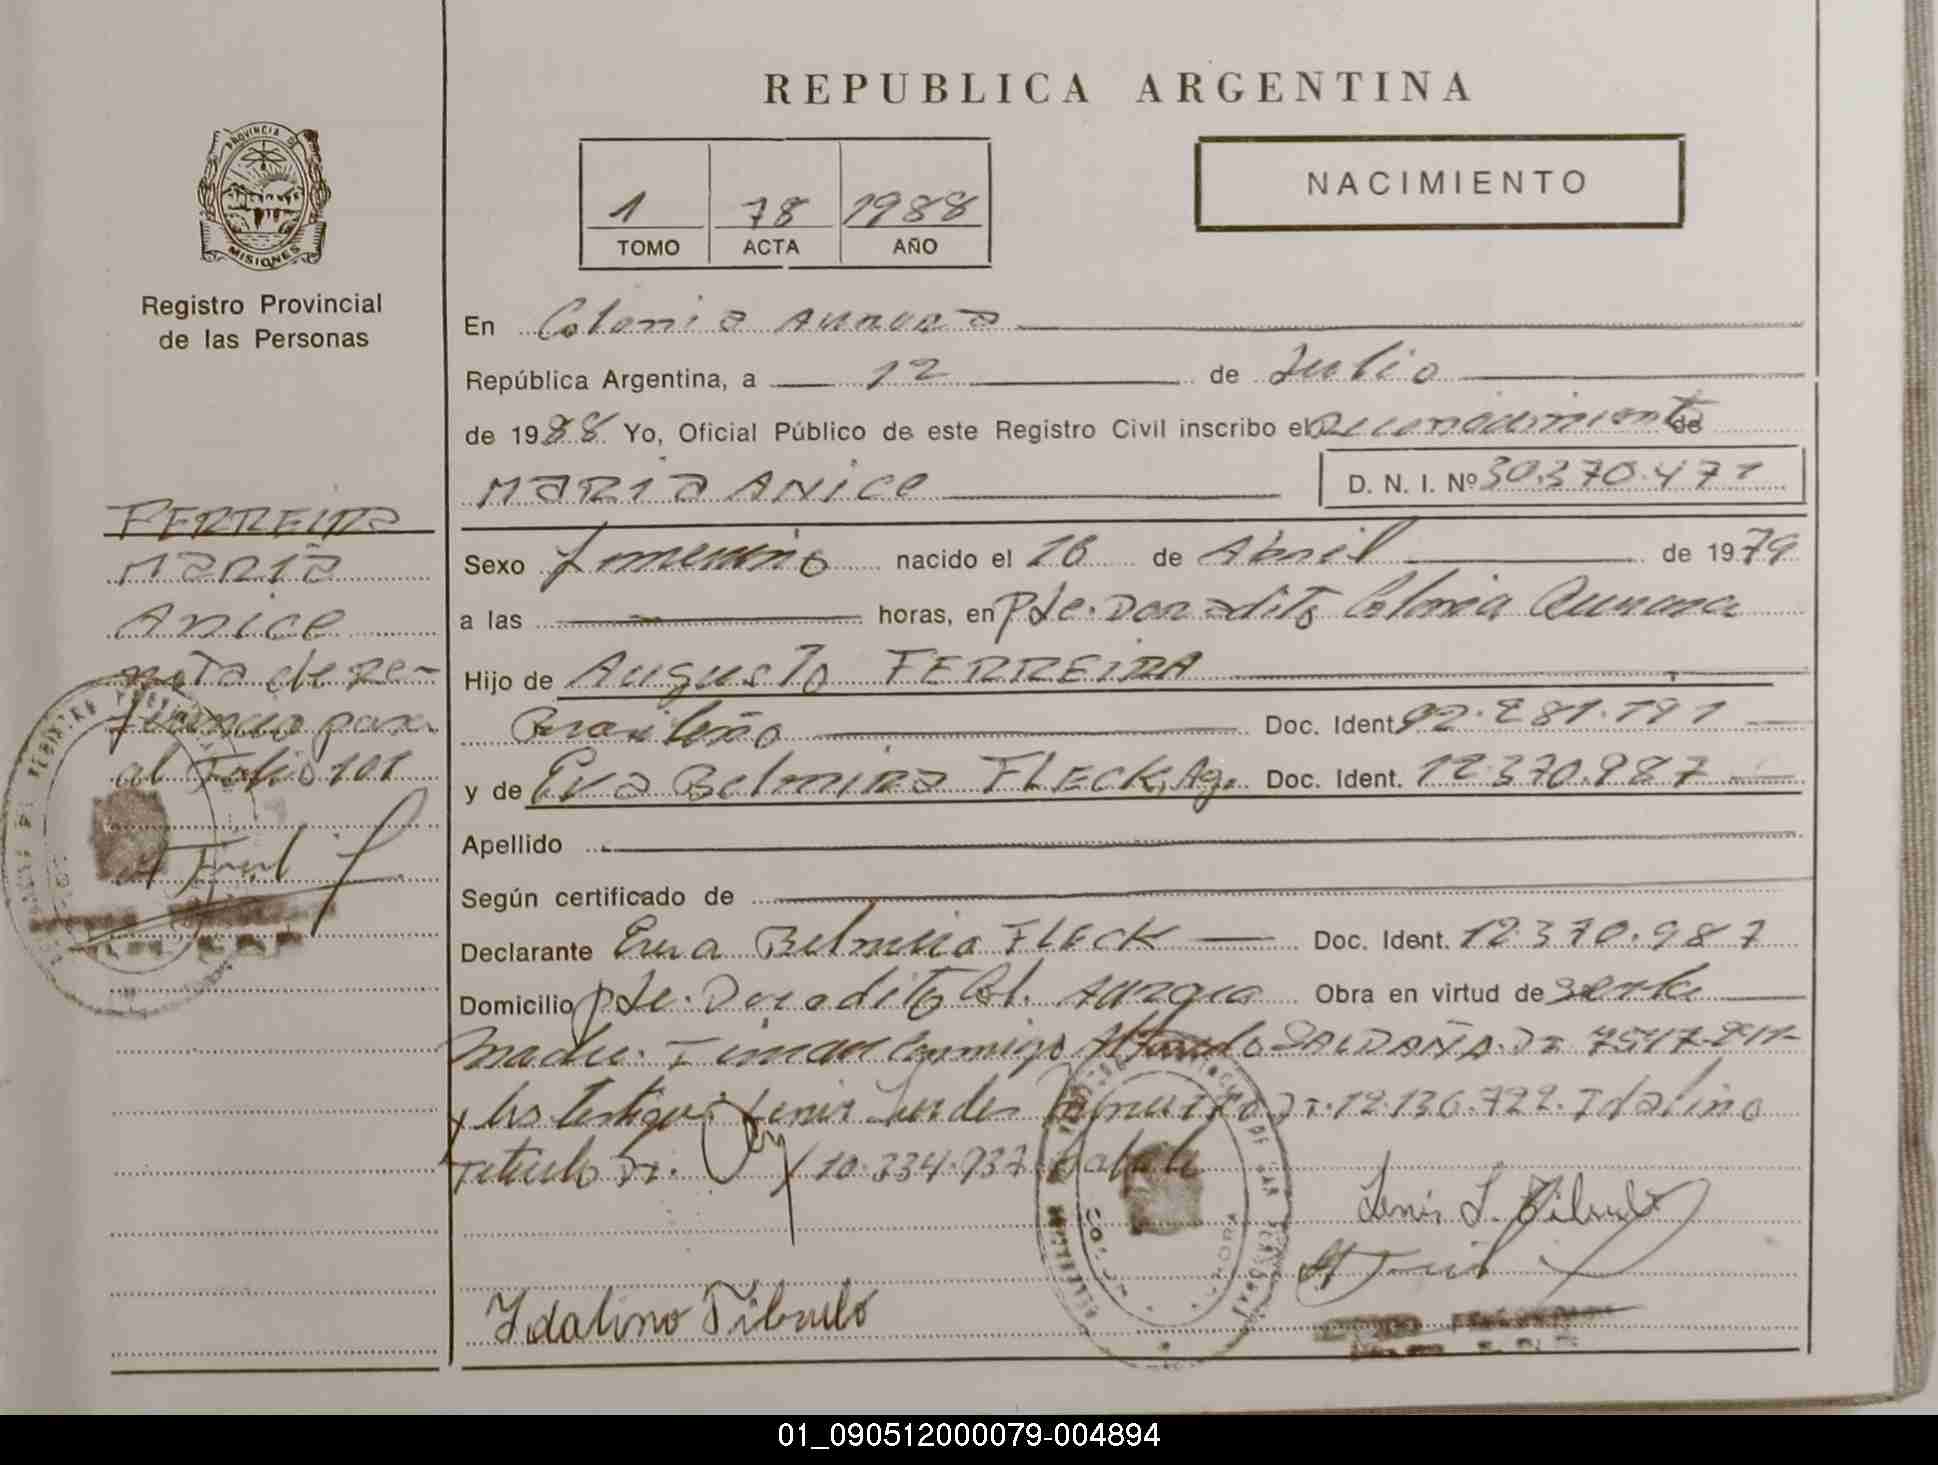 REPUBLICA ARGENTINA
PROVINCIA DE
MISIONES
Registro Provincial
de las Personas
1 78 1988
TOMO ACTA AÑO
NACIMIENTO
En Colonia Aurora
República Argentina, a 12 de Julio
de 1988 Yo, Oficial Público de este Registro Civil inscribo el reconocimiento de
MARIA ANICE D. N. I. Nº 30.370.471
FERREIRA
MARIA
ANICE
nota de re-
ferencia pasa
al Folio 101
Sexo femenino nacido el 18 de Abril de 1979
a las horas, en Pje. Doradito Colonia Aurora
Hijo de Augusto FERREIRA
Brasileño Doc. Ident. 92.281.191
y de Eva Belmira FLECK, Ag. Doc. Ident. 12.370.987
Apellido
Según certificado de
Declarante Eva Belmira FLECK Doc. Ident. 12.370.987
Domicilio Pje. Doradito Col. Aurora Obra en virtud de ser la
madre. Firman conmigo SALDAÑA. DI
y los testigos: Lenir DI. 12.136.722. Idalino
DI. 10.334.937
Idalino Tibulo
01_090512000079-004894